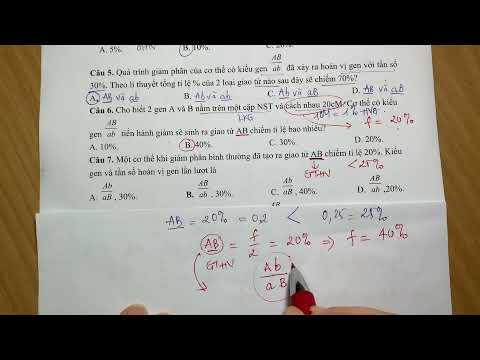 A. 5%. GTHN B. 10%.
AB
Câu 5. Quá trình giảm phân của cơ thể có kiểu gen ab đã xảy ra hoán vị gen với tần số
30%. Theo lí thuyết tổng tỉ lệ % của 2 loại giao tử nào sau đây sẽ chiếm 70%?
A. AB và ab B. Ab và aB C. Ab và ab D. AB và aB
Câu 6. Cho biết 2 gen A và B nằm trên một cặp NST và cách nhau 20cM. Cơ thể có kiểu
AB LKG 1cM = 1% HVG
gen ab tiến hành giảm sẽ sinh ra giao tử AB chiếm tỉ lệ bao nhiêu? f = 20%
A. 10%. B. 40%. C. 30%. D. 20%.
Câu 7. Một cơ thể khi giảm phân bình thường đã tạo ra giao tử AB chiếm tỉ lệ 20%. Kiểu
gen và tần số hoán vị gen lần lượt là GTHV < 25%
Ab AB Ab AB
A. aB , 30%. B. ab , 30%. C. aB , 40%. D. ab , 20%.
AB
AB = 20% = 0,2 < 0,25 = 25%
AB = f/2 = 20% ⇒ f = 40%
GTHV
Ab
aB